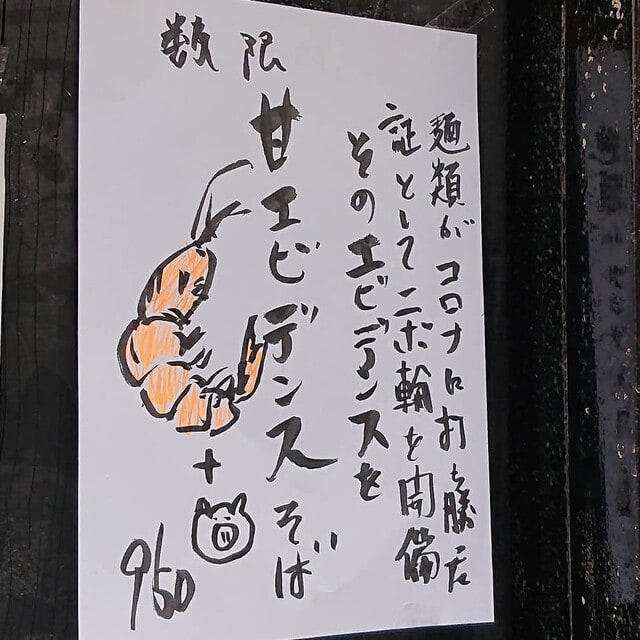 麺類がコロナに打ち勝居
証として二ホ輪を開備
そのエビデンスを
数限
甘エビデンスそば
+
950